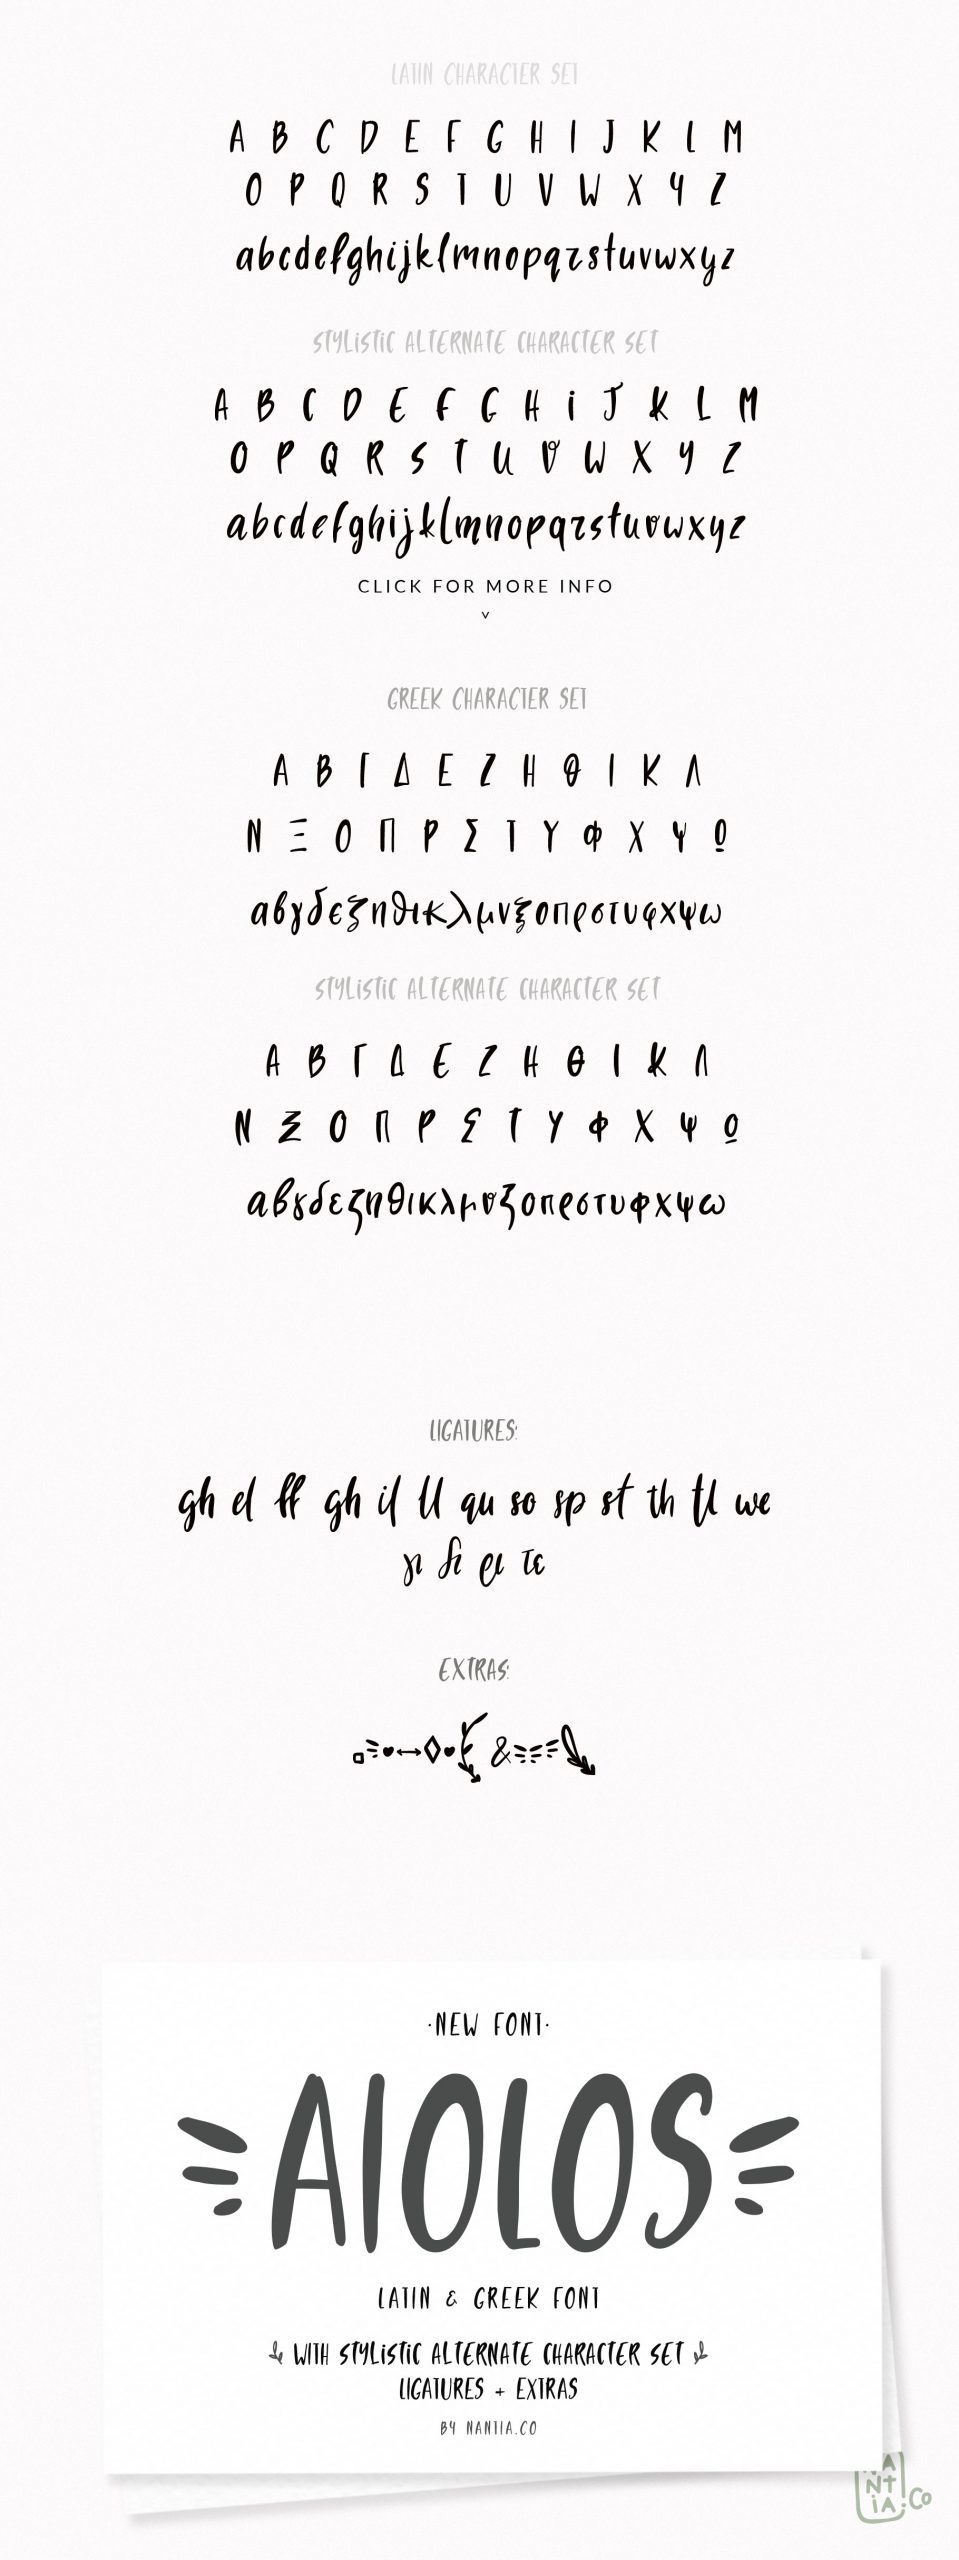 LATIN CHARACTER SET
A B C D E F G H I J K L M
O P Q R S T U V W X Y Z
abcdefghijklmnopqrstuvwxyz
STYLiSTiC ALTERNATE CHARACTER SET
A B C D E F G H i J K L M
O P Q R S T U V W X Y Z
abcdefghijklmnopqrstuvwxyz
CLICK FOR MORE INFO
v
GREEK CHARACTER SET
Α Β Γ Δ Ε Ζ Η Θ Ι Κ Λ
Ν Ξ Ο Π Ρ Σ Τ Υ Φ Χ Ψ Ω
αβγδεζηθικλμνξοπρστυφχψω
STYLiSTiC ALTERNATE CHARACTER SET
Α Β Γ Δ Ε Ζ Η Θ Ι Κ Λ
Ν Ξ Ο Π Ρ Σ Τ Υ Φ Χ Ψ Ω
αβγδεζηθικλμνξοπρστυφχψω
LIGATURES:
gh el ff gh il ll qu so sp st th tl we
γι δι ρι τε
EXTRAS:
&
·NEW FONT·
AIOLOS
LATIN & GREEK FONT
WITH STYLiSTiC ALTERNATE CHARACTER SET
LIGATURES + EXTRAS
BY NANTIA.CO
NANTiA.Co